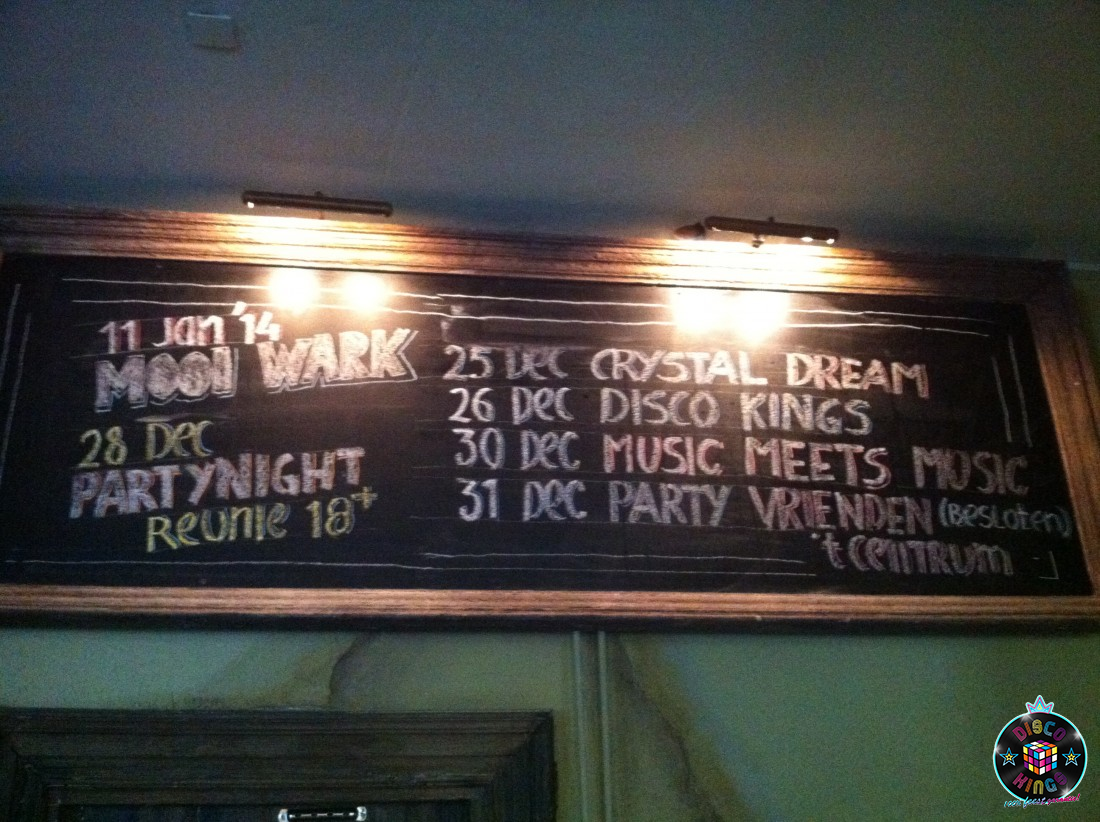 11 Jan '14
MOOI WARK
28 Dec
PARTYNIGHT
REUNIE 18+
25 Dec CRYSTAL DREAM
26 Dec DISCO KINGS
30 Dec MUSIC MEETS MUSIC
31 Dec PARTY VRIENDEN (BESLOTEN)
't CENTRUM
DISCO
KINGS